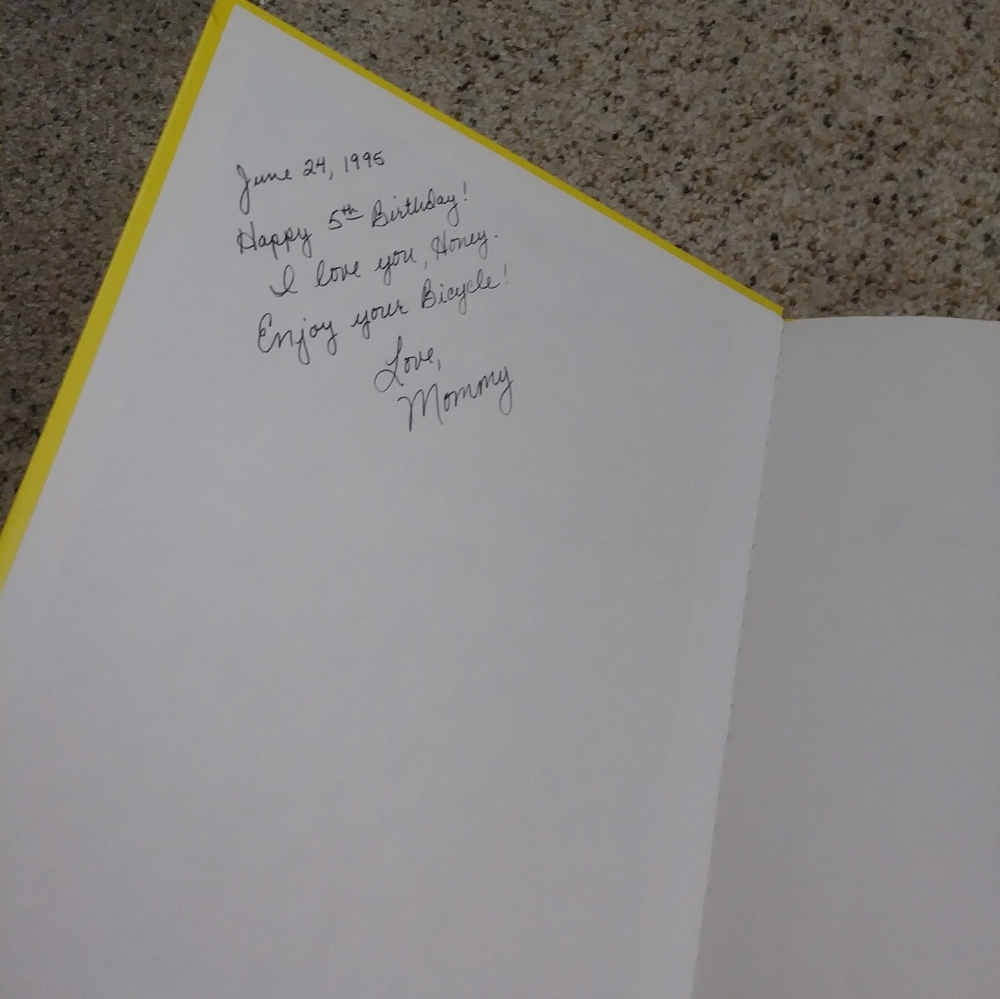 June 24, 1995
Happy 5th Birthday!
I love you, Honey.
Enjoy your Bicycle!
Love,
Mommy